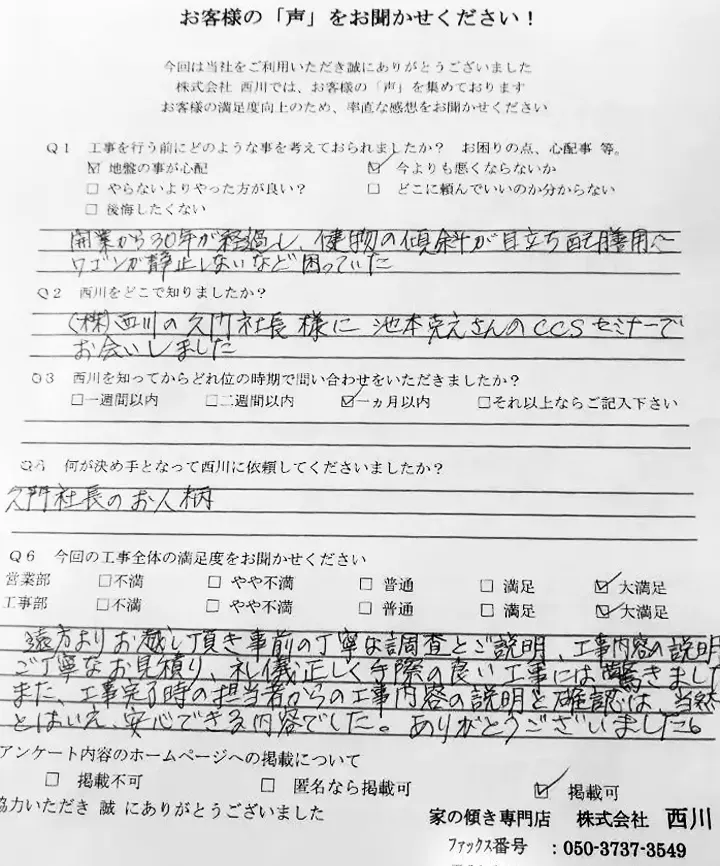 お客様の「声」をお聞かせください！
今回は当社をご利用いただき誠にありがとうございました
株式会社 西川では、お客様の「声」を集めております
お客様の満足度向上のため、率直な感想をお聞かせください
Q1 工事を行う前にどのような事を考えておられましたか？ お困りの点、心配事 等。
☑ 地盤の事が心配 ☑ 今よりも悪くならないか
□ やらないよりやった方が良い？ □ どこに頼んでいいのか分からない
□ 後悔したくない
開業から30年が経過し、建物の傾斜が目立ち配膳用の
ワゴンが静止しないなど困っていた
Q2 西川をどこで知りましたか？
(株)西川の久門社長様に 池本克之さんのCCSセミナーで
お会いしました
Q3 西川を知ってからどれ位の時期で問い合わせをいただきましたか？
□一週間以内 □二週間以内 ☑一ヵ月以内 □それ以上ならご記入下さい
Q4 何が決め手となって西川に依頼してくださいましたか？
久門社長のお人柄
Q6 今回の工事全体の満足度をお聞かせください
営業部 □不満 □ やや不満 □ 普通 □ 満足 ☑ 大満足
工事部 □不満 □ やや不満 □ 普通 □ 満足 ☑ 大満足
遠方よりお越し頂き事前の丁寧な調査とご説明、工事内容の説明
ご丁寧なお見積り、礼儀正しく手際の良い工事には驚きました
また、工事完了時の担当者からの工事内容の説明と確認は、当然
とはいえ、安心できる内容でした。ありがとうございました。
アンケート内容のホームページへの掲載について
□ 掲載不可 □ 匿名なら掲載可 ☑ 掲載可
協力いただき 誠 にありがとうございました
家の傾き専門店 株式会社 西川
ファックス番号 ：050-3737-3549